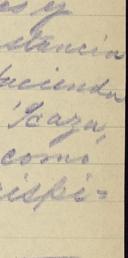 es y
stancia
hacienda
Caza,
como
rispi=